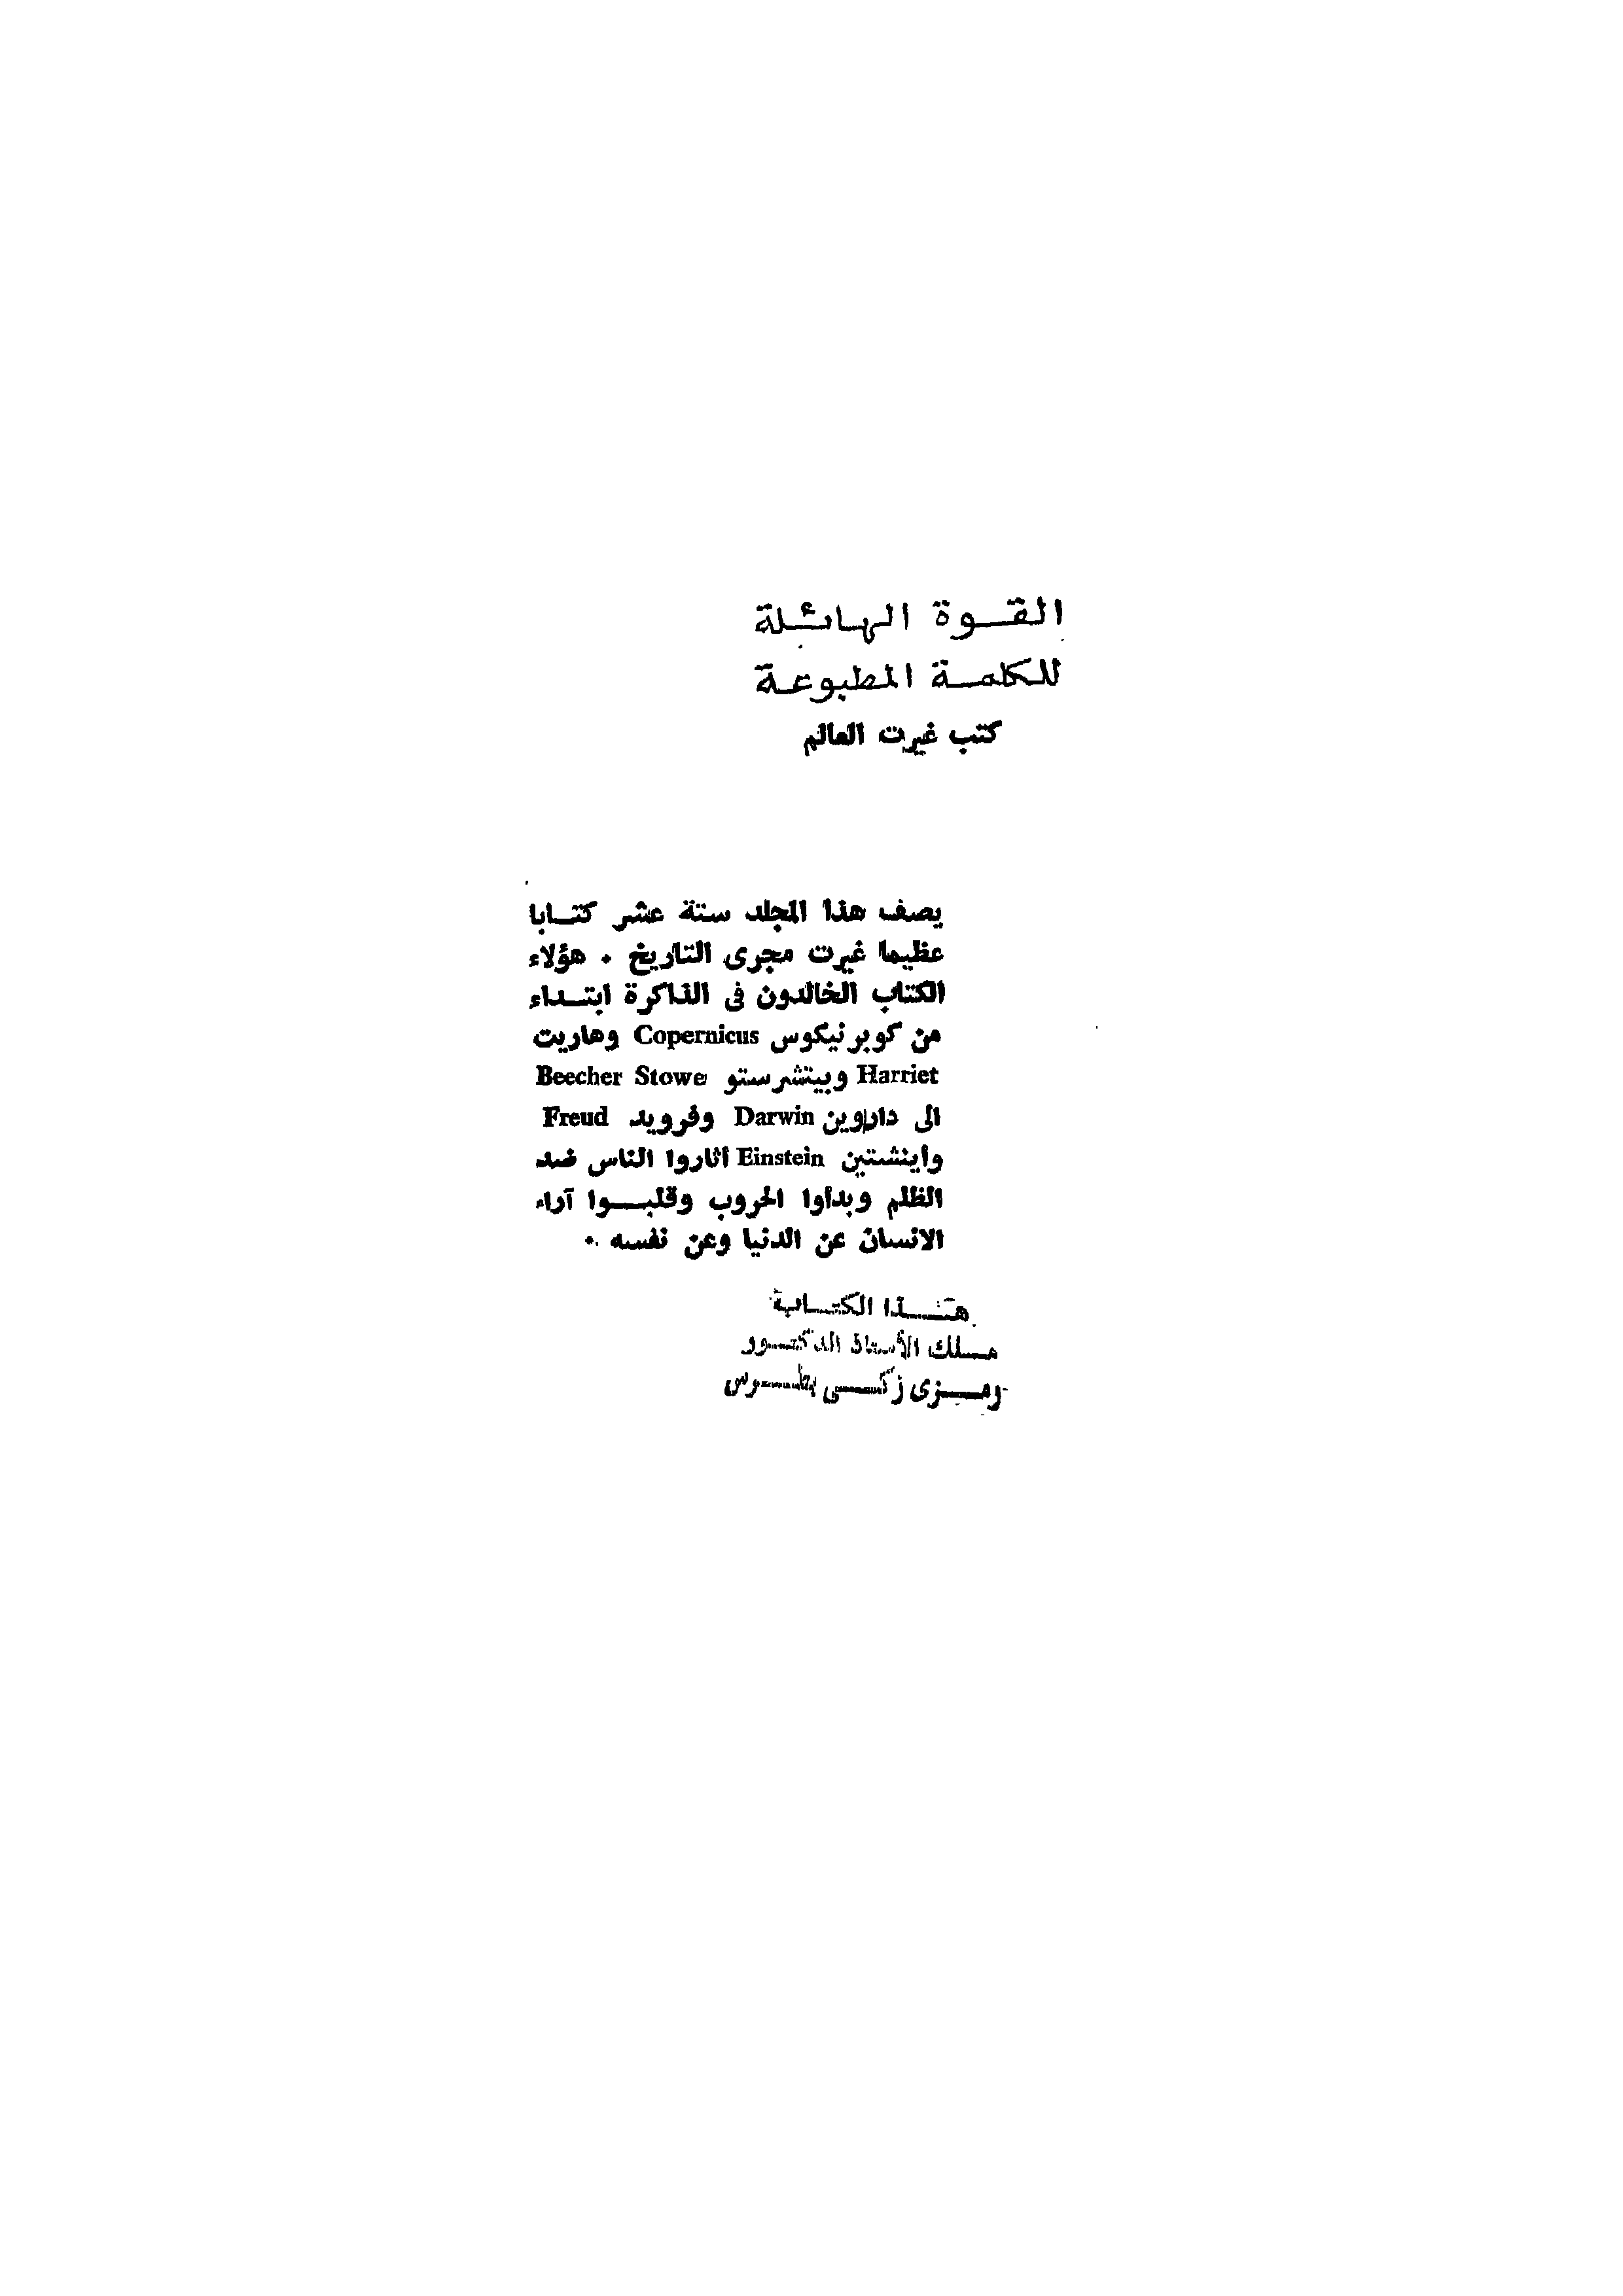 القوة الهائلة
للكلمة المطبوعة
كتب غيرت العالم
يصف هذا المجلد ستة عشر كتابا
عظيما غيرت مجرى التاريخ . هؤلاء
الكتاب الخالدون فى الذاكرة ابتداء
من كوبرنيكوس Copernicus وهاريت
Harriet وبيتشر ستو Beecher Stowe
الى داروين Darwin وفرويد Freud
وأينشتين Einstein أثاروا الناس ضد
الظلم وبدأوا الحروب وقلبوا آراء
الانسان عن الدنيا وعن نفسه .
هذا الكتاب
ملك الأستاذ الدكتور
رمزى زكى بطرس